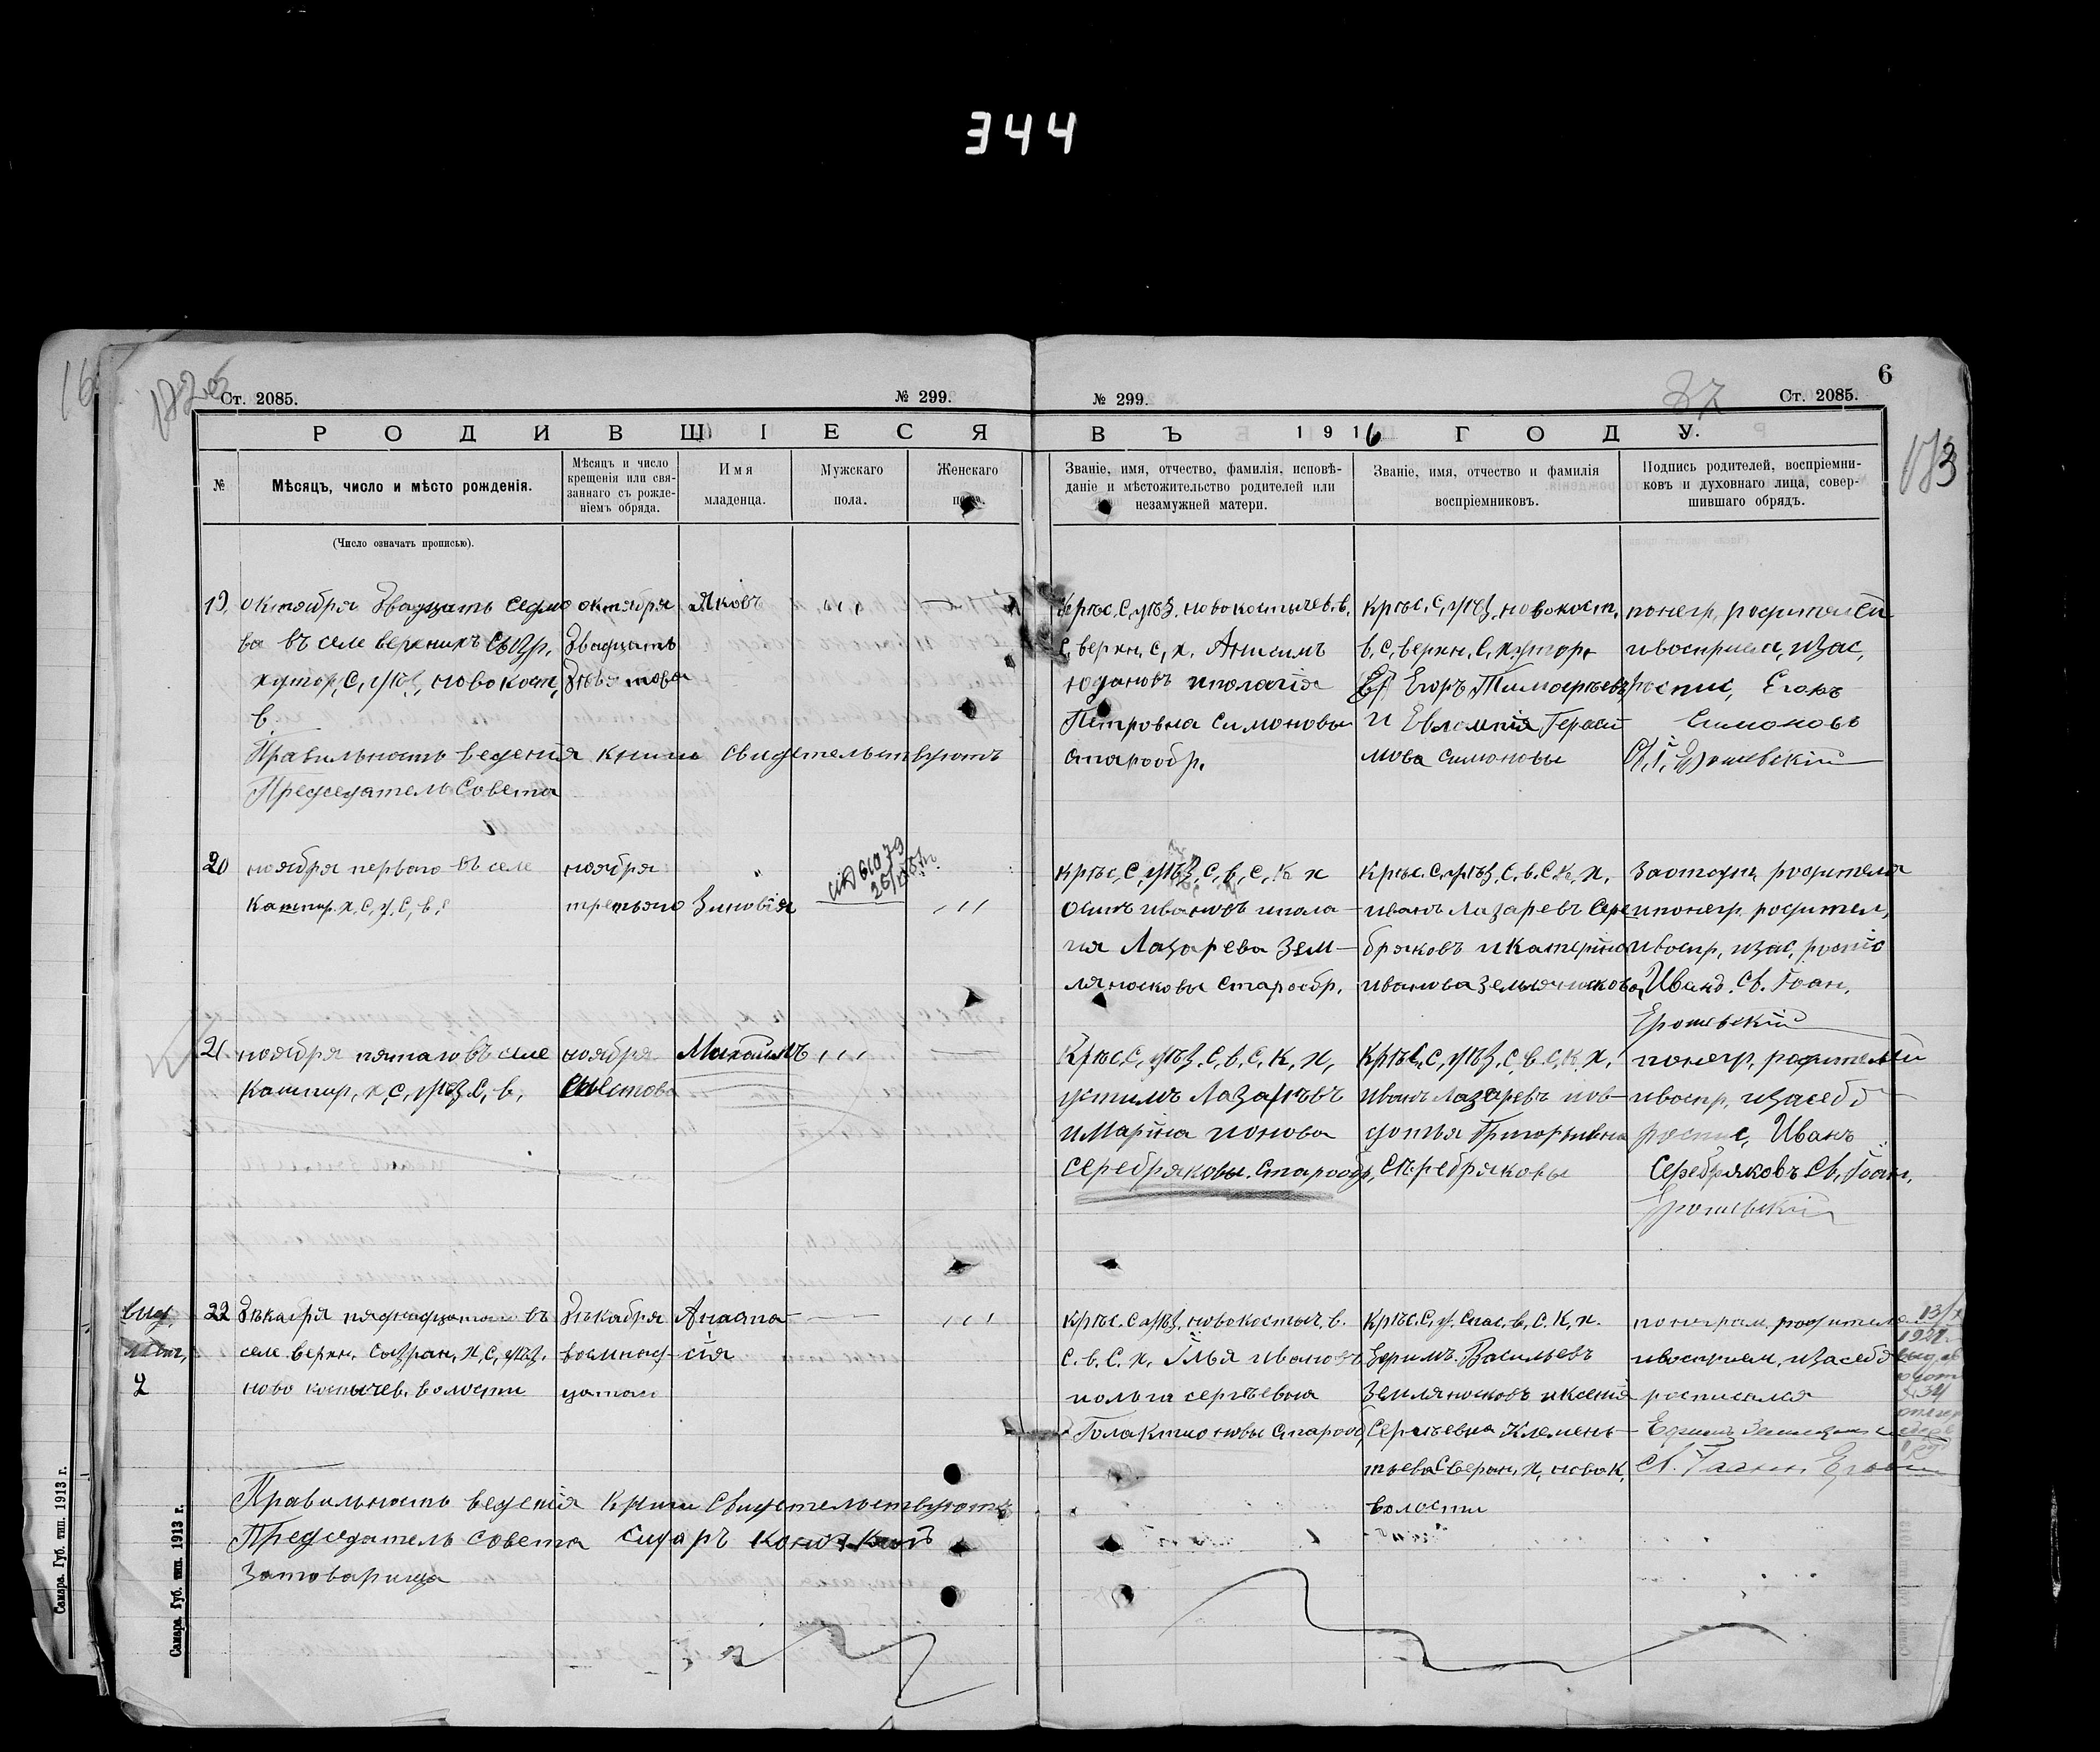 344
Ст. 2085.
№ 299.
№ 299.
37
Ст. 2085.
6
РОДИВШІЕСЯ
ВЪ 1916 ГОДУ.
№
Мѣсяцъ, число и мѣсто рожденія.
Мѣсяцъ и число
крещенія или свя-
заннаго съ рожде-
ніемъ обряда.
Имя
младенца.
Мужскаго
пола.
Женскаго
пола.
Званіе, имя, отчество, фамилія, исповѣ-
даніе и мѣстожительство родителей или
незамужней матери.
Званіе, имя, отчество и фамилія
воспріемниковъ.
Подпись родителей, воспріемни-
ковъ и духовнаго лица, совер-
шившаго обрядъ.
(Число означать прописью).
19,
октября двадцать седмо
ва въ селе верхнихъ Сызр,
хутор, С, уѣз, новокост,
в.
октября
двадцать
девятова
Яковъ
Крѣс. С, уѣз. новокостычев. в.
С. верхн. с, х. Анисимъ
ипологія
Петровна Симоновы
старообр.
Крѣс. С, уѣз, новокост.
в. с. верхн. С. хутор.
Егоръ Тимофѣевъ
и Евломпія Гераси
мова Симоновы
понегр, родителей
ивосприем, изас,
роспис, Егоръ
Симоновъ
Правильность веденія книги свидетельствуютъ
Председатель Совета
20
ноября первого въ селе
Кашпир. х, С, у, С, в,
ноября
третьяго
Зиновія
Крѣс, С, уѣз, С, в, С, К х
Осипъ ивановъ ипела-
гия Лазарева Зем-
ляносковы старообр.
Крѣс. С, уѣз, С. в. С. К, х,
иванъ Лазаревъ Сере
бряковъ и Катерина
иванова Земляноскова
иванъ. Св. Іоан,
Ерошевскій
21
ноября пятаго въ селе
Кашпир, х, С, уѣз. С, в,
ноября
шестова
Михаилъ
Крѣс. С, уѣз. С, в. С, К, х,
устимъ Лазаревъ
и Марина ионова
Серебряковы. Старообр,
Крѣс. С, уѣз, С, в. С. К, х.
иванъ Лазаревъ иев-
докья Григорьевна
Серебряковы
понегр, родителей
ивоспр, изасебя
роспис, Иванъ
Серебряковъ Св, Іоан,
Ерошевскій
выд.
2
22
Декабря пятнадцатаго въ
селе верхн. Сызран, х, С, уѣз.
ново костычев. волости
Декабря
восмнад-
цатаго
Анаста-
сія
Крѣс. С. уѣз, новокостыч. в.
С. в. С. х, Илья ивановъ
иольга сергѣевна
Голактионовы Старооб,
Крѣс. С, у. Спас. в. С. К, х.
Ефимъ. Васильевъ
Земляносковъ и ксенія
Сергѣевна Клемень-
тьева
волости
понеграм, родителе
ивосприем, изасебя
росписался
1928.
Правильность веденія Книги Свидетельствуютъ
Председатель Совета Сидоръ
Затоварища
Самара. Губ. тип. 1913 г.
Самара. Губ. тип. 1913 г.